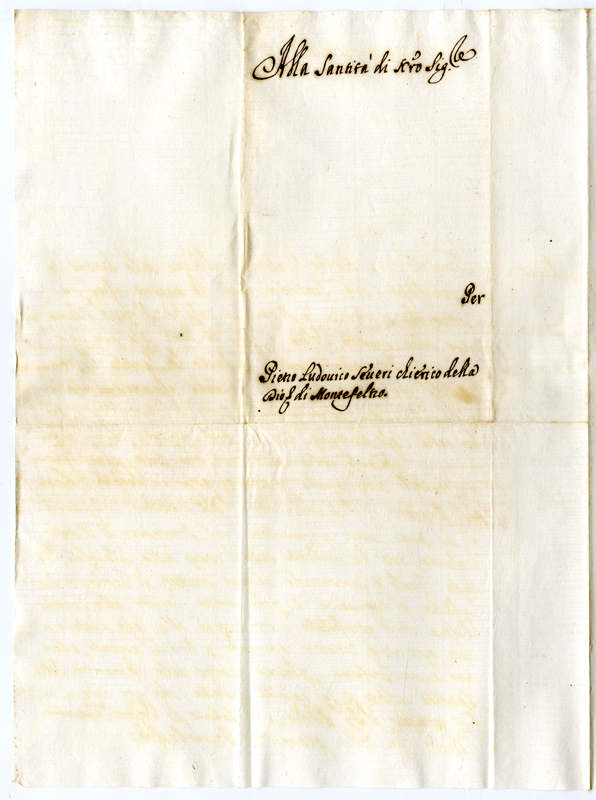 Alla Santità di Nrõ Sig.re
Per
Pietro Ludovico Seueri chierico della
Dioc. di Montefeltro.